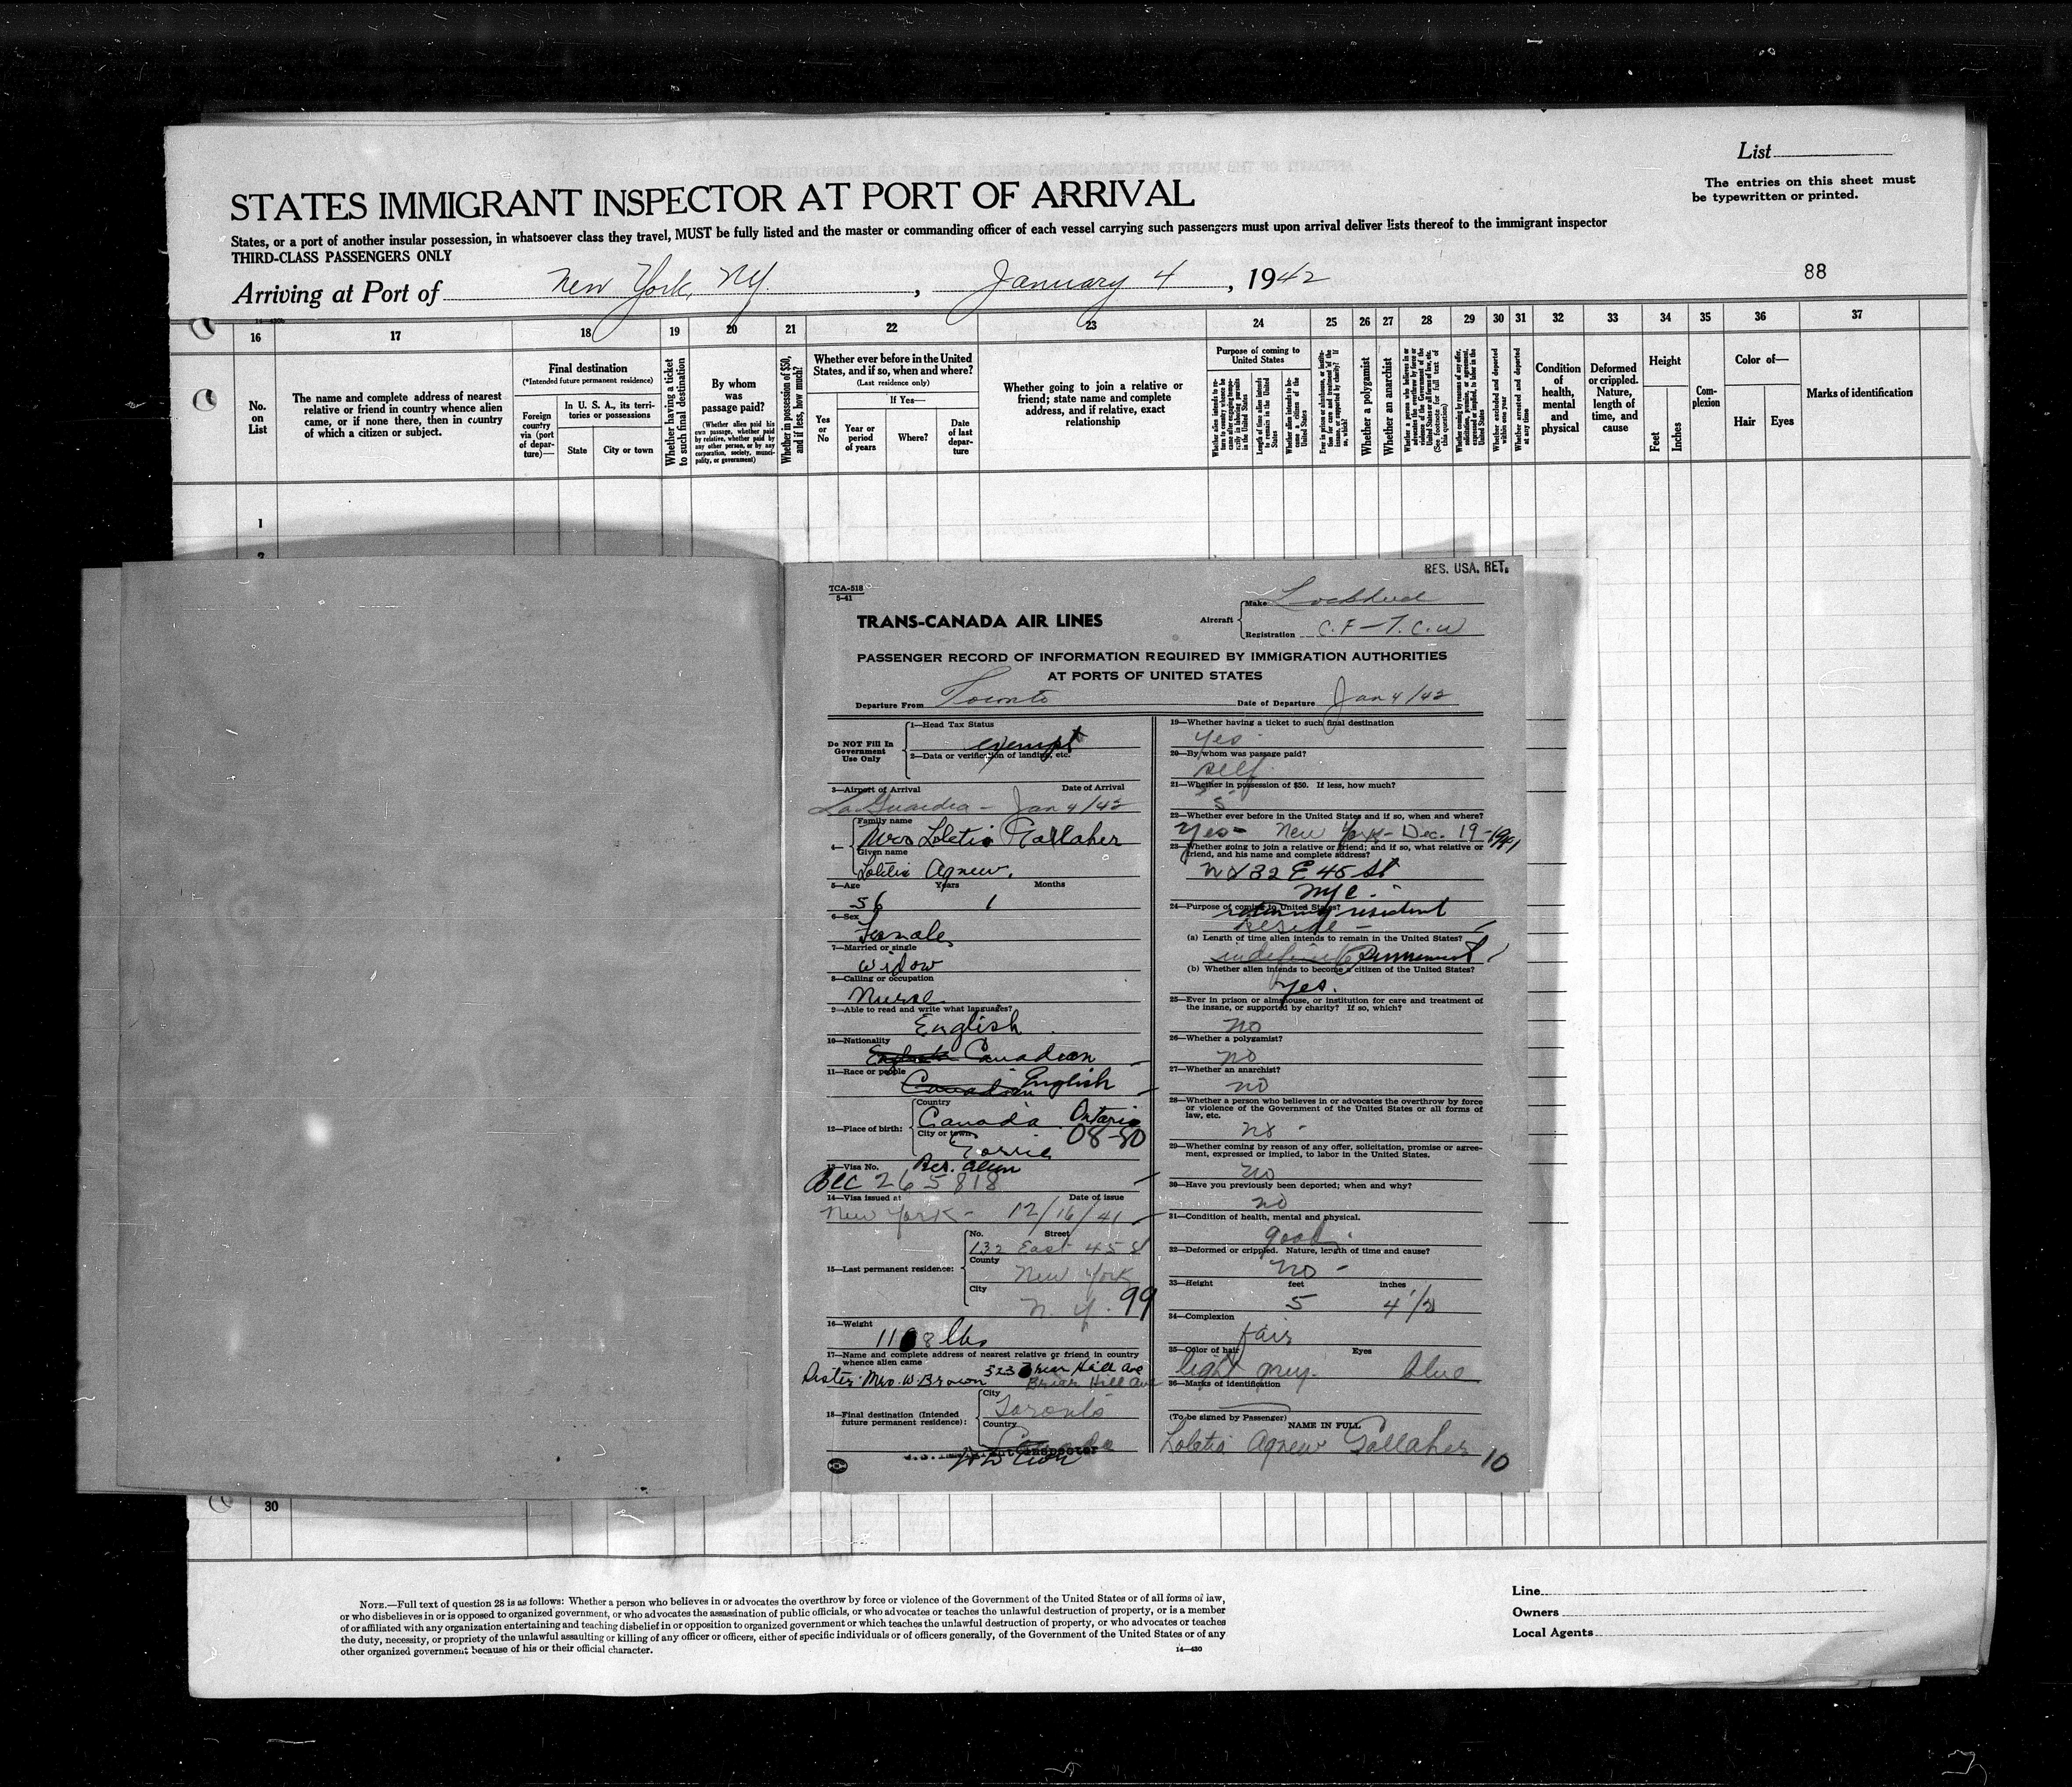 List
The entries on this sheet must
be typewritten or printed.
STATES IMMIGRANT INSPECTOR AT PORT OF ARRIVAL
States, or a port of another insular possession, in whatsoever class they travel, MUST be fully listed and the master or commanding officer of each vessel carrying such passengers must upon arrival deliver lists thereof to the immigrant inspector
THIRD-CLASS PASSENGERS ONLY
88
Arriving at Port of New York, NY. , January 4 , 1942
16 17 18 19 20 21 22 23 24 25 26 27 28 29 30 31 32 33 34 35 36 37
No. on List
The name and complete address of nearest relative or friend in country whence alien came, or if none there, then in country of which a citizen or subject.
Final destination
(*Intended future permanent residence)
Foreign country via (port of departure)—
In U. S. A., its territories or possessions
State
City or town
Whether having a ticket to such final destination
By whom was passage paid?
(Whether alien paid his own passage, whether paid by relative, whether paid by any other person, or by any corporation, society, municipality, or government)
Whether in possession of $50, and if less, how much?
Whether ever before in the United States, and if so, when and where?
(Last residence only)
Yes or No
If Yes—
Year or period of years
Where?
Date of last departure
Whether going to join a relative or friend; state name and complete address, and if relative, exact relationship
Purpose of coming to United States
Length of time alien intends to remain in the United States
Whether alien intends to become a citizen of the United States
Whether a polygamist
Whether an anarchist
Whether excluded and deported within one year
Whether arrested and deported at any time
Condition of health, mental and physical
Deformed or crippled. Nature, length of time, and cause
Height
Feet
Inches
Complexion
Color of—
Hair
Eyes
Marks of identification
1
2
RES. USA. RET.
TCA-518
5-41
TRANS-CANADA AIR LINES
Aircraft
Make Lockheed
Registration C.F-T.C.W
PASSENGER RECORD OF INFORMATION REQUIRED BY IMMIGRATION AUTHORITIES
AT PORTS OF UNITED STATES
Departure From Toronto
Date of Departure Jan 4/42
Do NOT Fill In
Government
Use Only
1—Head Tax Status
exempt
2—Data or verification of landing, etc.
3—Airport of Arrival Date of Arrival
La Guardia - Jan 4/42
4—
Family name
Mrs Loletia Gallaher
Given name
Loletia Agnew.
5—Age Years Months
56 1
6—Sex
Female
7—Married or single
Widow
8—Calling or occupation
Nurse
9—Able to read and write what languages?
English
10—Nationality
English Canadian
11—Race or people
Canadian English
12—Place of birth:
Country
Canada Ontario
City or town
08-80
13—Visa No.
Res. Alien
265818
14—Visa issued at Date of issue
New York - 12/16/41
15—Last permanent residence:
No. Street
132 East 45 St
County
New York
City
N. Y. 99
16—Weight
118 lbs
17—Name and complete address of nearest relative or friend in country
whence alien came
Sister Mrs. W. Brown 523 Briar Hill Ave
Briar Hill Ave
18—Final destination (Intended
future permanent residence):
City
Toronto
Country
Inspector
19—Whether having a ticket to such final destination
Yes
20—By whom was passage paid?
self
21—Whether in possession of $50. If less, how much?
22—Whether ever before in the United States and if so, when and where?
Yes - New York - Dec. 19-1941
23—Whether going to join a relative or friend; and if so, what relative or
friend, and his name and complete address?
132 E 45 St
NYC.
24—Purpose of coming to United States?
returning resident
Reside -
(a) Length of time alien intends to remain in the United States?
indefinite Permanent
(b) Whether alien intends to become a citizen of the United States?
Yes.
25—Ever in prison or almshouse, or institution for care and treatment of
the insane, or supported by charity? If so, which?
no
26—Whether a polygamist?
no
27—Whether an anarchist?
no
28—Whether a person who believes in or advocates the overthrow by force
or violence of the Government of the United States or all forms of
law, etc.
no -
29—Whether coming by reason of any offer, solicitation, promise or agree-
ment, expressed or implied, to labor in the United States.
no
30—Have you previously been deported; when and why?
no
31—Condition of health, mental and physical.
good.
32—Deformed or crippled. Nature, length of time and cause?
no -
33—Height feet inches
5 4 1/2
34—Complexion
fair
35—Color of hair Eyes
light grey. blue
36—Marks of identification
(To be signed by Passenger)
NAME IN FULL
Loletia Agnew Gallaher 10
30
NOTE.—Full text of question 28 is as follows: Whether a person who believes in or advocates the overthrow by force or violence of the Government of the United States or of all forms of law,
or who disbelieves in or is opposed to organized government, or who advocates the assassination of public officials, or who advocates or teaches the unlawful destruction of property, or is a member
of or affiliated with any organization entertaining and teaching disbelief in or opposition to organized government or which teaches the unlawful destruction of property, or who advocates or teaches
the duty, necessity, or propriety of the unlawful assaulting or killing of any officer or officers, either of specific individuals or of officers generally, of the Government of the United States or of any
other organized government because of his or their official character.
14—430
Line
Owners
Local Agents